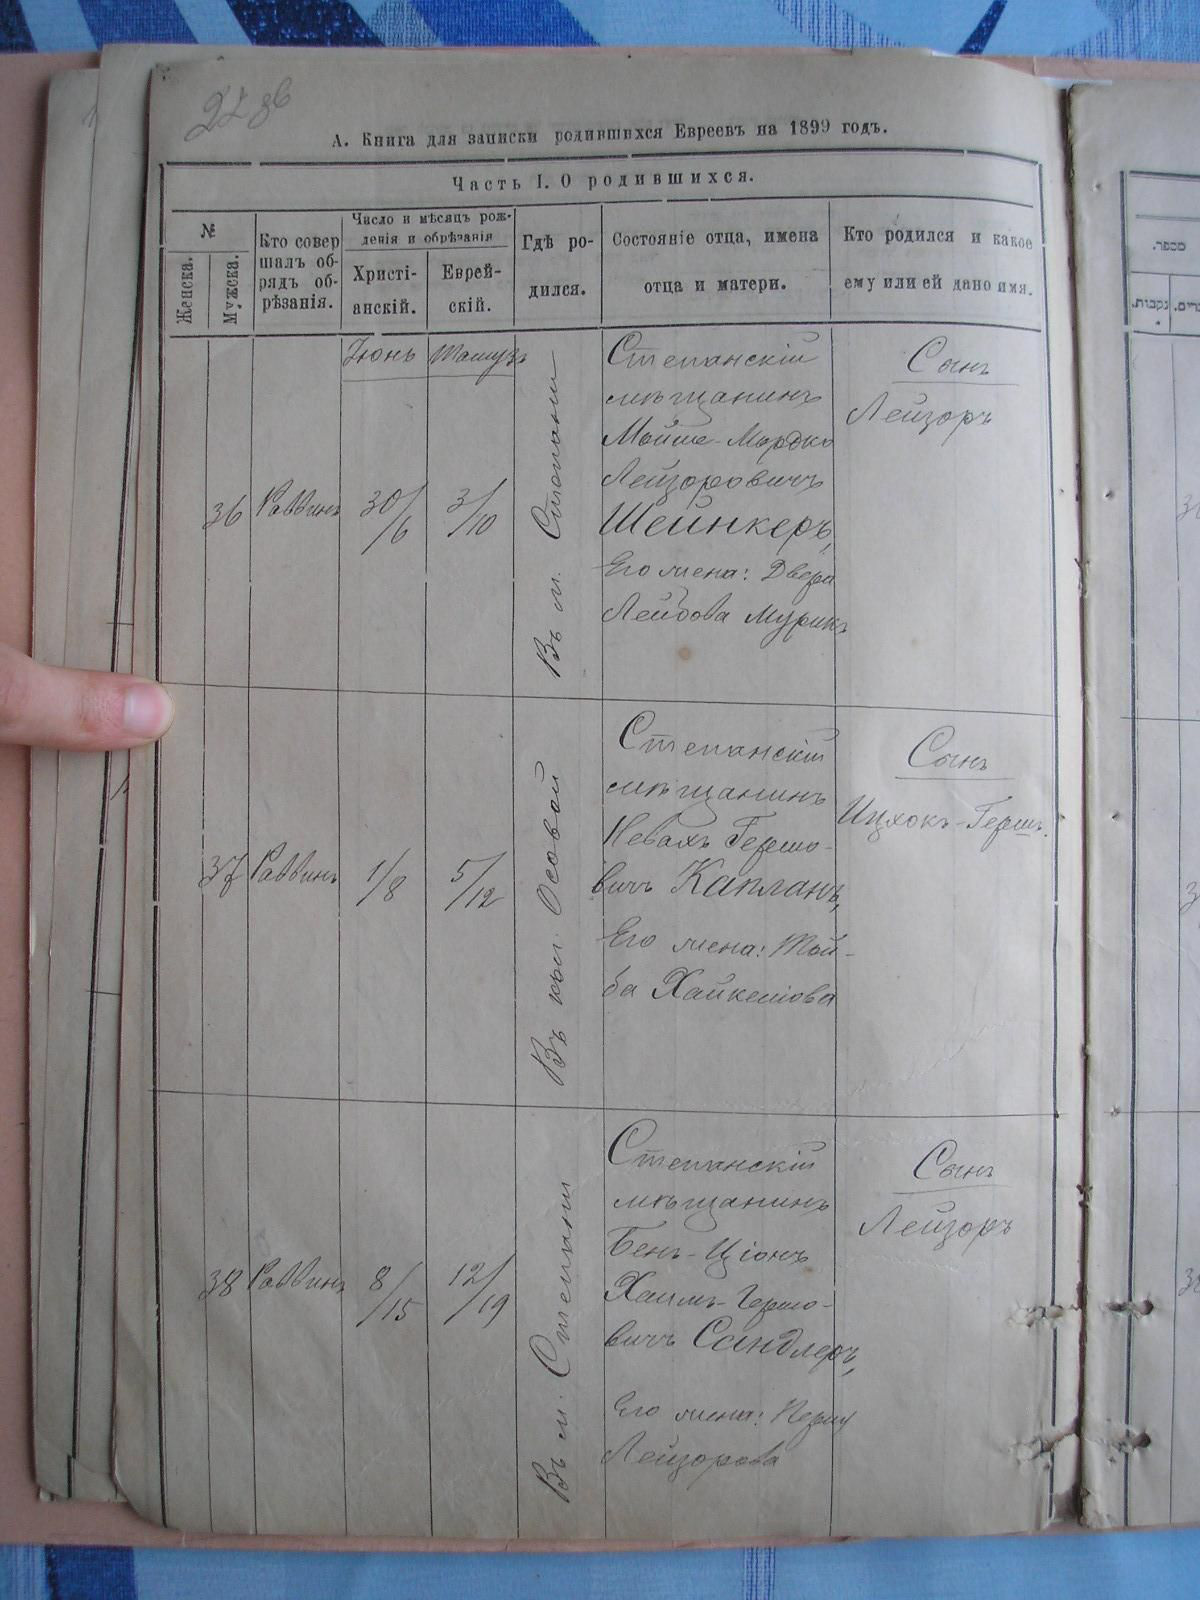 А. Книга для записки родившихся Евреевъ на 1899 годъ.
Часть I. О родившихся.
№
Женска.
Мужска.
Кто совер
шалъ об-
рядъ об-
рѣзанія.
Число и мѣсяцъ рож-
денія и обрѣзанія
Христі-
анскій.
Еврей-
скій.
Гдѣ ро-
дился.
Состояніе отца, имена
отца и матери.
Кто родился и какое
ему или ей дано имя.
מספר.
נקבות.
Іюнь
Тамузъ
36
Раввинъ
30/6
3/10
Въ м. Степани
Степанскій
мѣщанинъ
Мойше-Мордко
Лейзоровичъ
Шейнкеръ,
Его жена: Двера
Лейбова Мурикъ
Сынъ
Лейзоръ
37
Раввинъ
1/8
5/12
Въ кол. Осовой
Степанскій
мѣщанинъ
Невахъ Гершо-
вичъ Капланъ,
Его жена: Той-
ба Хайкелова
Сынъ
Ицхокъ-Гершъ.
38
Раввинъ
8/15
12/19
Въ м. Степани
Степанскій
мѣщанинъ
Бенъ-Ціонъ
Хаимъ-Гершо-
вичъ Сандлеръ,
Его жена:
Лейзорова
Сынъ
Лейзоръ